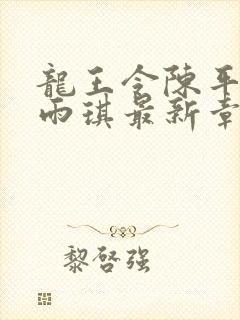 龍王令陳平
雨琪最新章
黎啓强